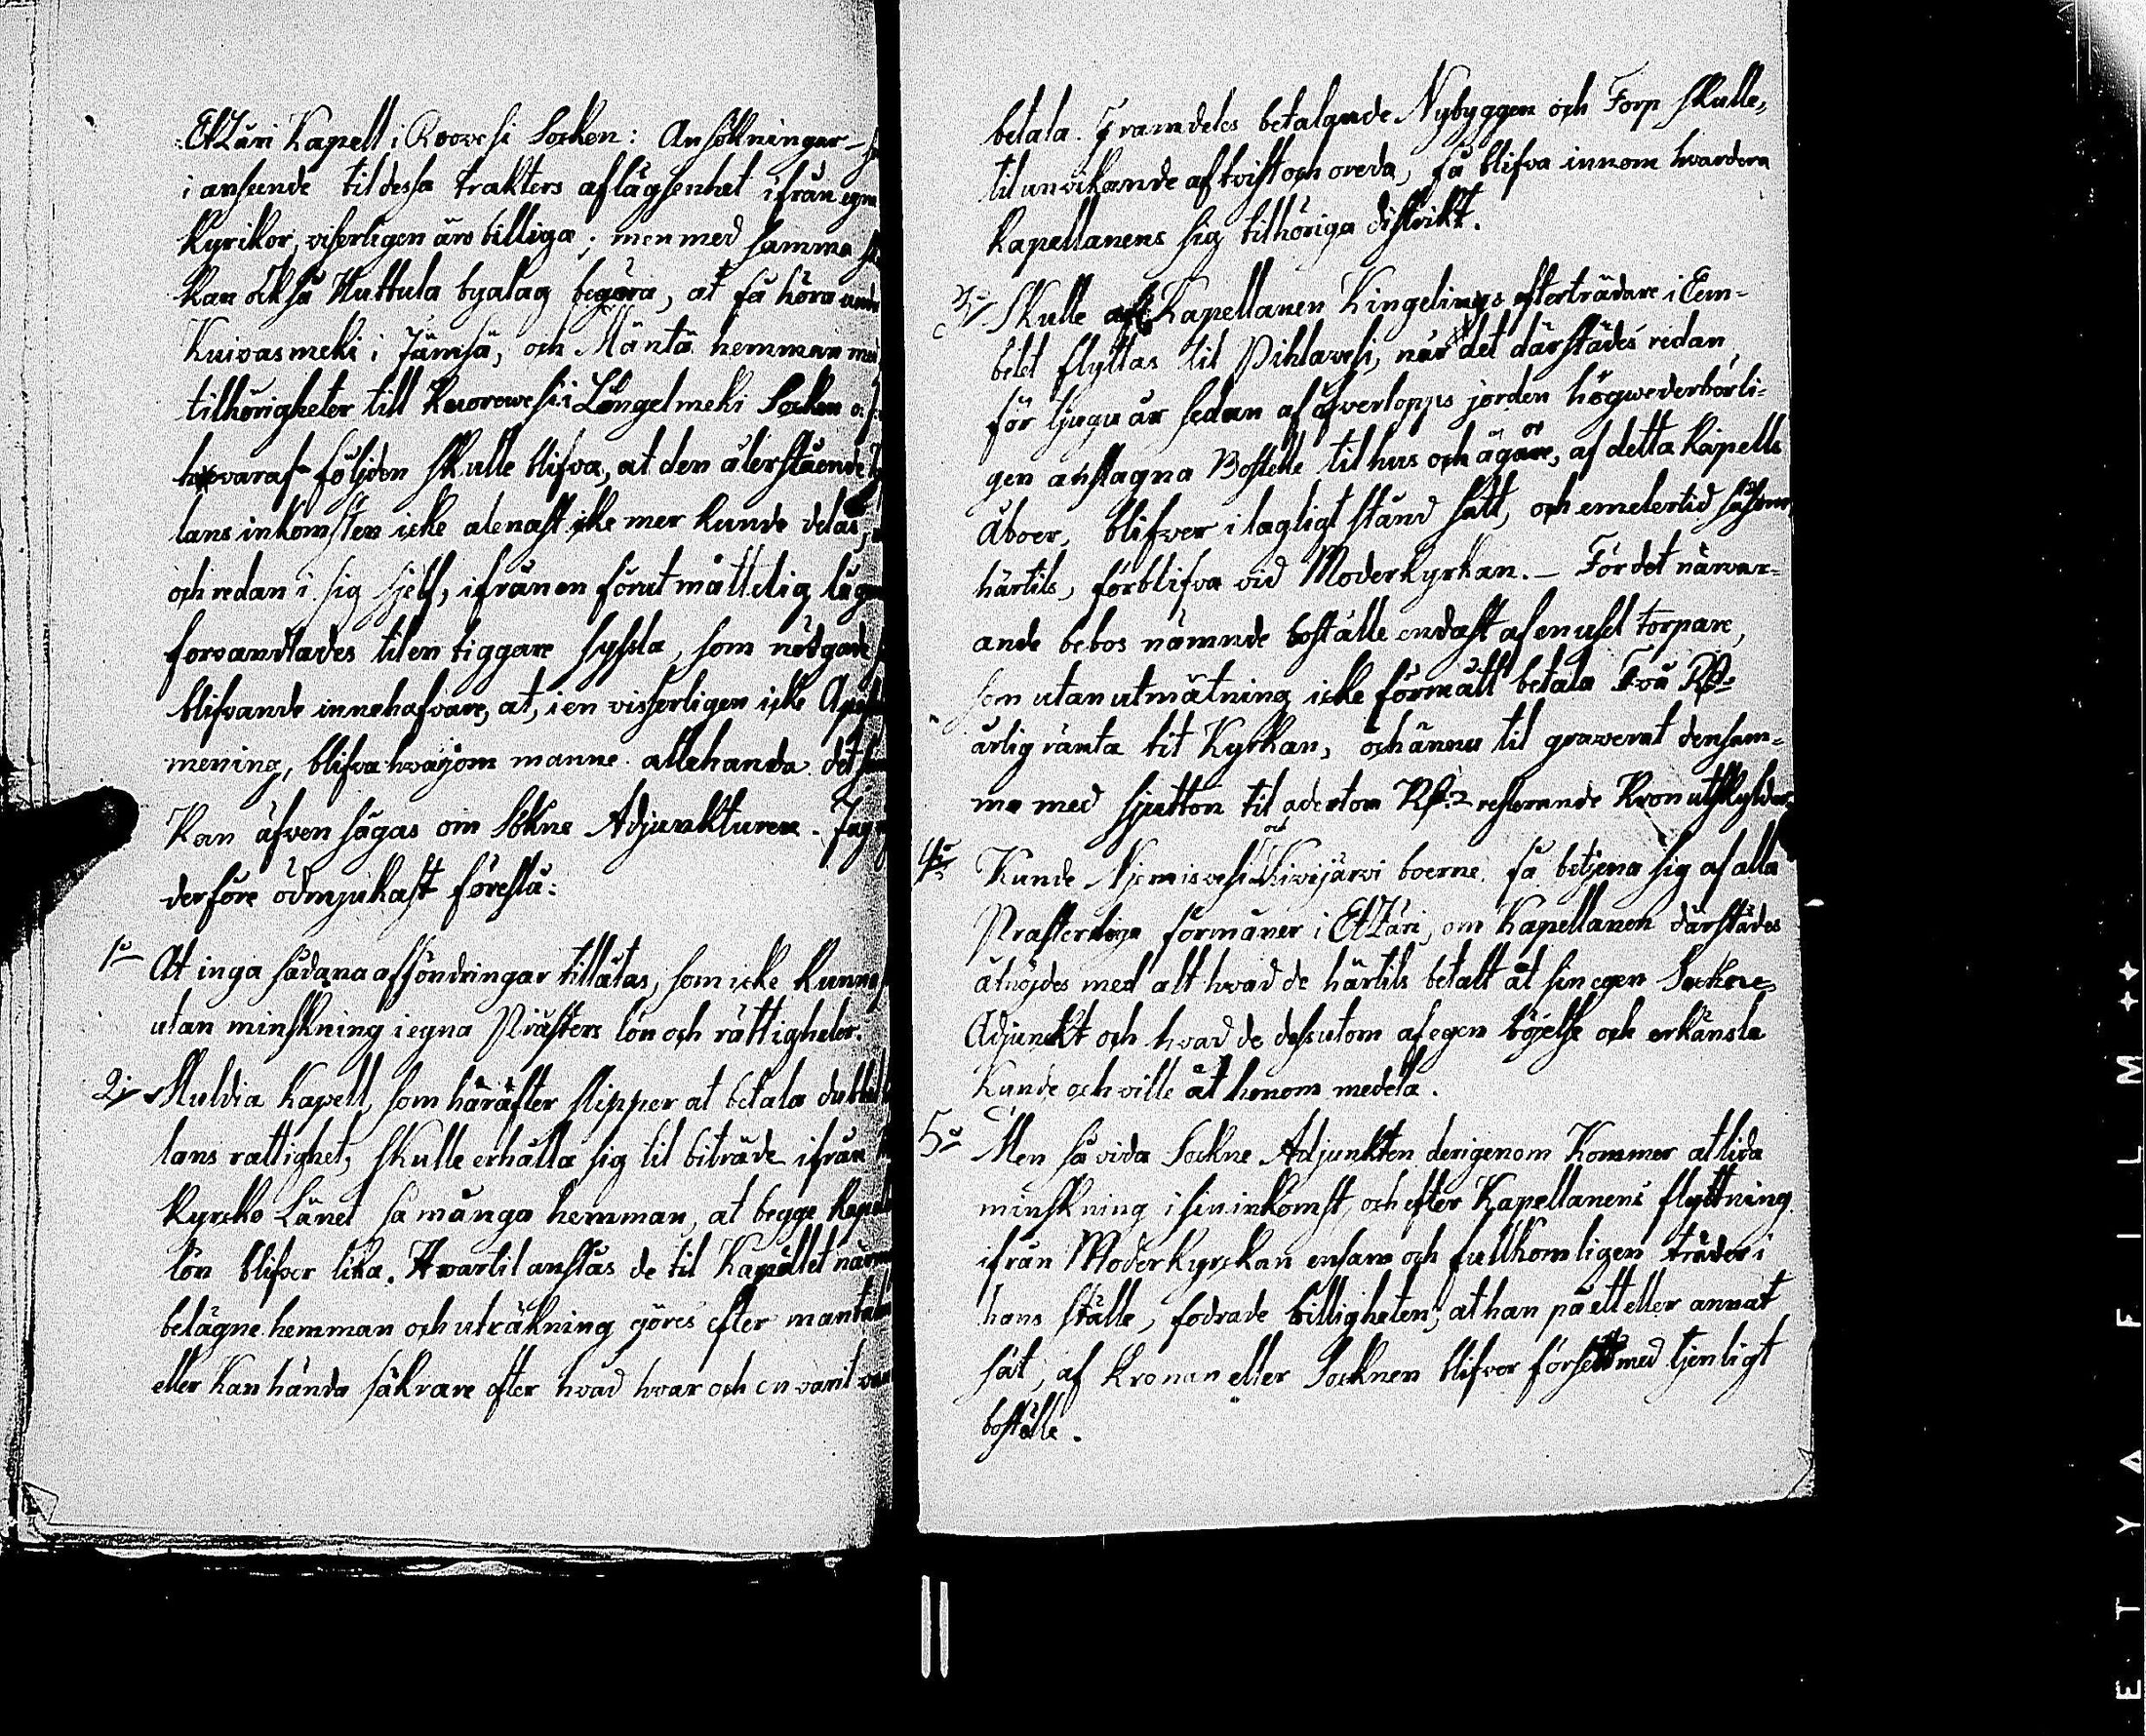 Etzäri Kapell i Roovesi Socken: Ansökningar
i anseende til dessa trakters aflägsenhet ifrån egna
Kyrikor, visserligen äro billiga; men med samma
kan också Huttula byalag begära, at få höra under
Kuivasmeki i Jämsä, och Mäntä hemman med
tilhörigheter till Kuorewesi i Längelmeki Socken
hvaraf följden skulle blifva, at den återstående
lans inkomster icke alenast icke mer kunde delas,
och redan i sig sjelf, ifrån en förut måttelig
forvandlades til en tiggare syssla, som nödgade
blifvande innehafvare, at, i en visserligen icke
mening, blifva hvarjom manne allehanda. det
Kan äfven sägas om Sökne Adjunkturen. Jag
derföre ödmjukast föreslå:
1o At inga sådana afsöndringar tillåtas, som icke kunna
utan minskning i egna Prästers lön och rättigheter.
2o Muldia Kapell, som härefter slipper at betala dubbel
lans rättighet, skulle erhålla sig til biträde ifrån
Kyrcko Länet så många hemman, at begge
lön blifver lika. Hvartil anslås de til Kapellet närm
belägne hemman och uträkning göres efter mantal
eller kan hända säkrare efter hvad hvar och en varit van
betala. Framdeles betalande Nybyggen och Torp skulle,
til undvikande af tvist och oreda, få blifva innom hvardera
Kapellanens sig tilhöriga distrikt.
3o Skulle Kapellanen Kingelins efterträdare i Eem-
betet flyttas til Pihlavesi, när det därstädes redan
för tjugu år sedan af öfverlopps jorden högwederbörli-
gen anslagna Boställe til hus och ägor, af detta Kapells
Åboer, blifver i lagligt stånd satt, och emelertid såsom
härtils, förblifva vid Moderkyrkan. — För det närvar-
ande bebos nämnde boställe endast af en usel torpare,
som utan utmätning icke förmått betala Två Rd:
årlig ränta til Kyrkan, och ännu til graverat densam-
ma med sjutton til aderton Rd: resterande Kronutskylder
4o Kunde Njemisvesi och Kivijärvi boerne få betjena sig af alla
Prästerliga förmåner i Etzäri, om Kapellanen därstädes
åtnöjdes med alt hvad de härtils betalt åt sin egen Sockne
Adjunckt och hvad de dessutom af egen böjelse och erkänsla
Kunde och ville åt honom medela.
5o Men så vida Sockne Adjunkten derigenom Kommer at lida
minskning i sin inkomst, och efter Kapellanens flyttning
ifrån Moderkyrckan ensam och fullkomligen träder i
hans ställe, fodrade billigheten, at han på ett eller annat
sät, af Kronan eller Socknen blifver försett med tjenligt
boställe.
ETYAFILM